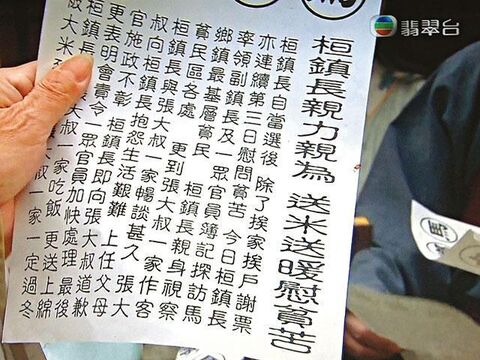 翡翠台
桓鎮長親力親為 送米送暖慰貧苦
桓鎮長自當選後 除了挨家挨戶謝票
亦連續第三日慰問貧苦 今日桓鎮長
率領副鎮長及一眾官員簿記探訪馬
鄉鎮最基層貧民 桓鎮長親身視察
貧民區各處 更到張大叔一家作客
桓鎮長與張大叔一家暢談甚久 張大
叔向桓鎮長抱怨生活艱難 上任父母
官施政不彰 桓鎮長即向張大叔道歉
更表明會壹令一眾官員加快處理 最後
桓鎮長 大叔一家吃飯 更送上綿
大米 大叔一家一定過冬